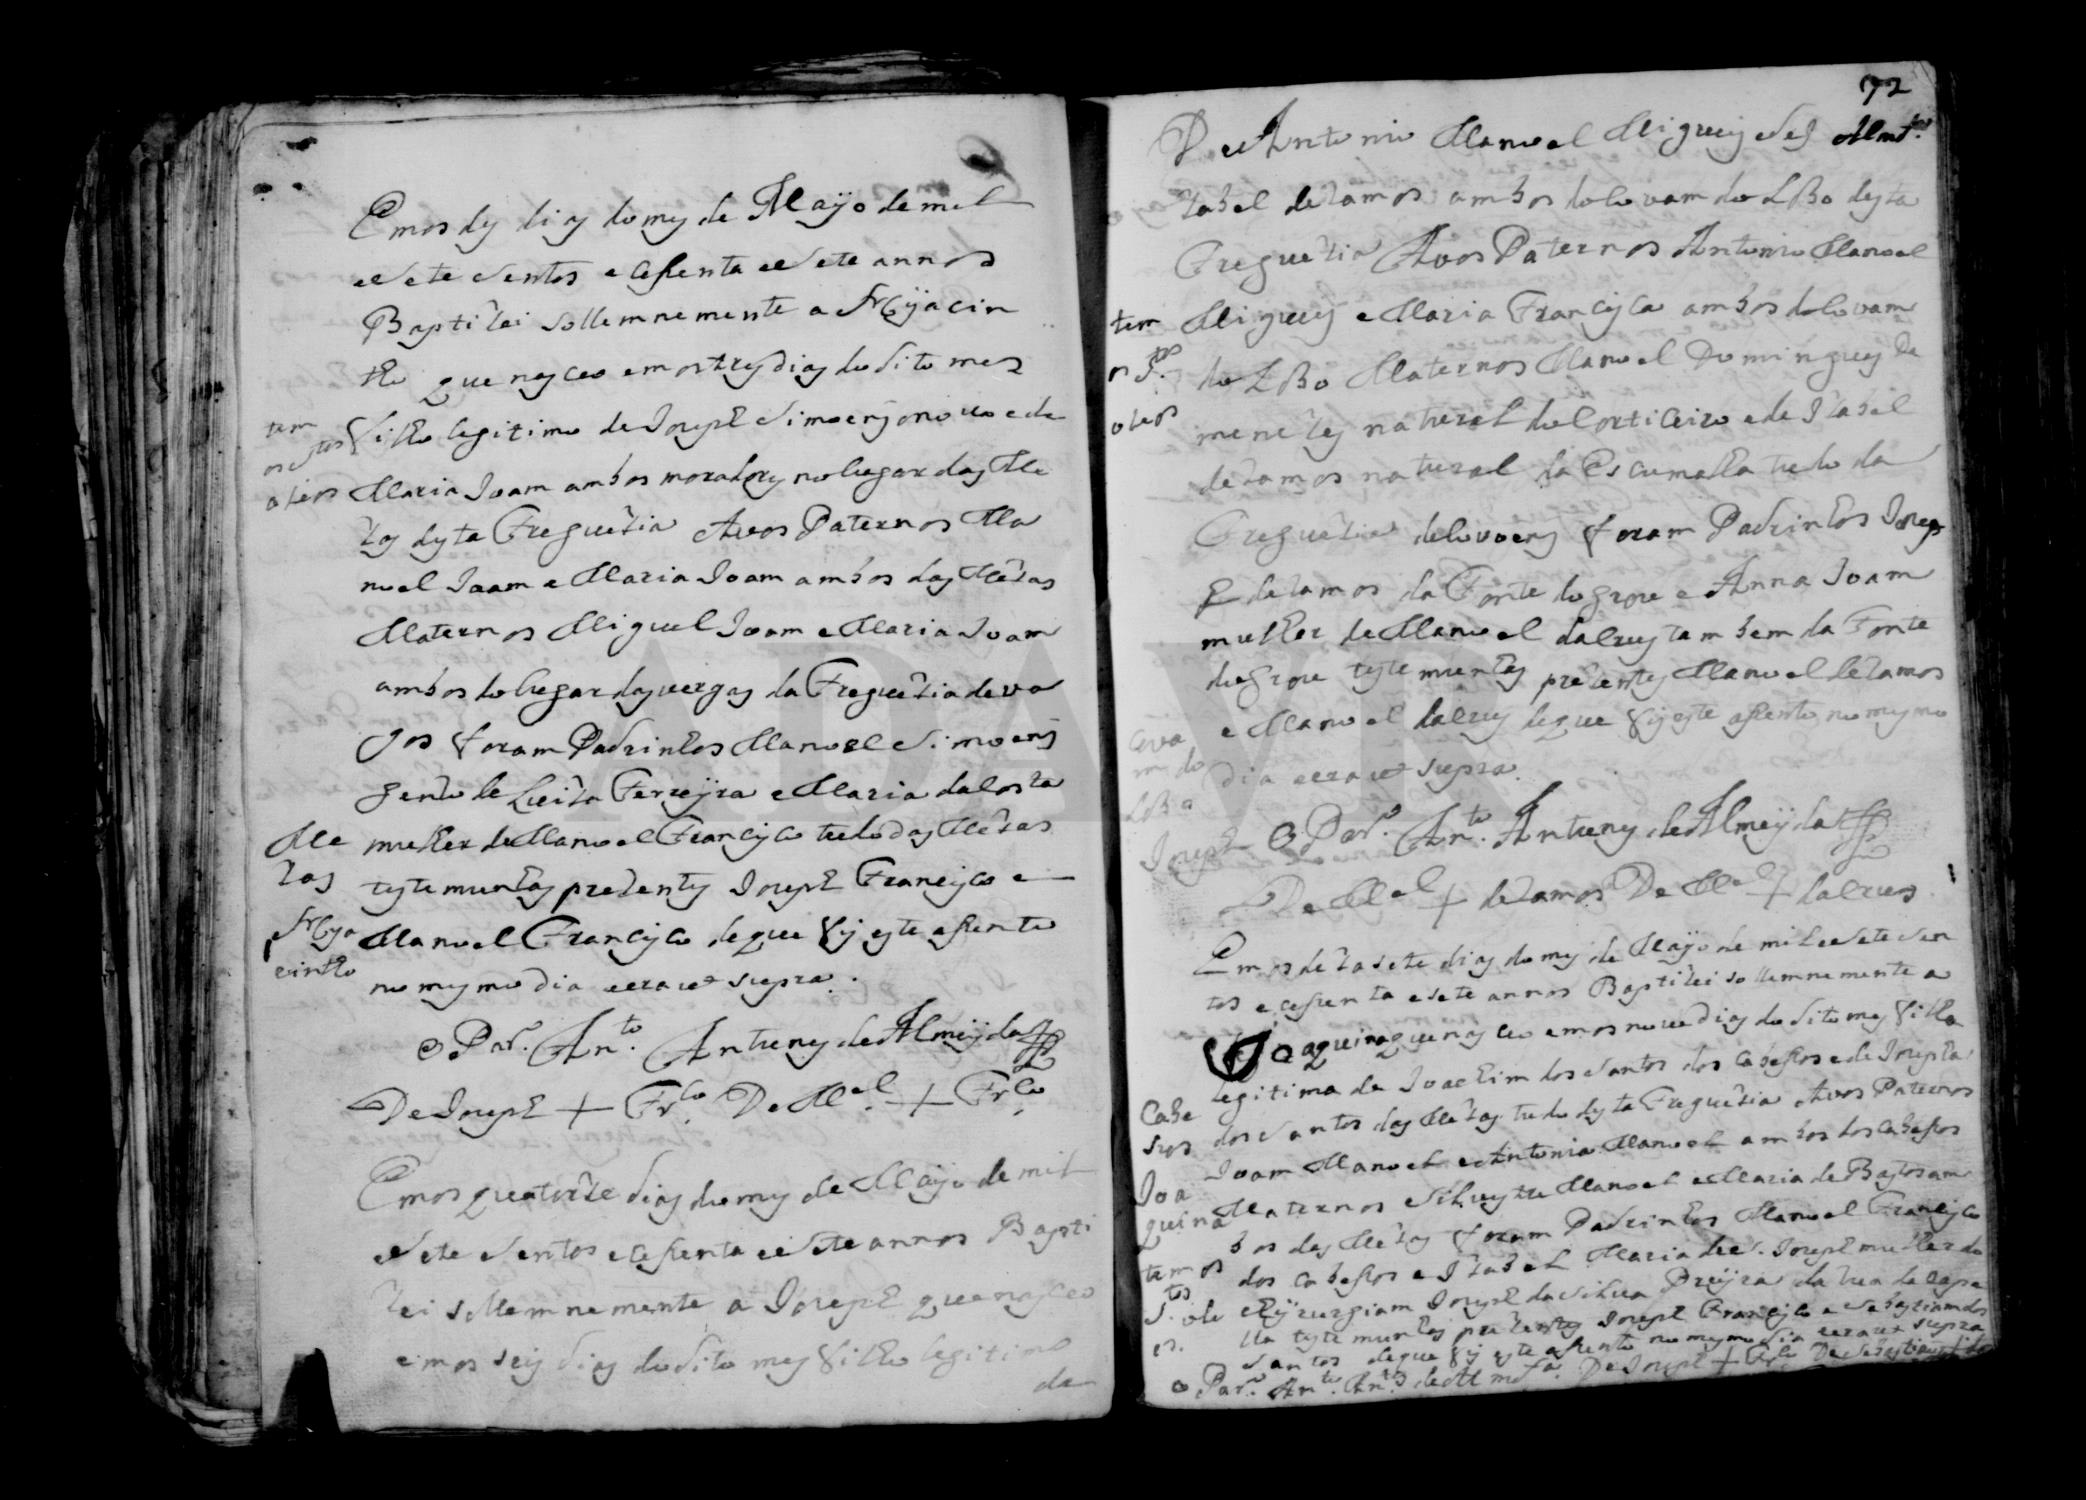 Emos des dias do mes de Mayo de mil
e sete sentos e cessenta e sete annos
Baptizei sollemnemente a Hyacin
tho que nasceo emos tres dias do dito mes
filho legitimo de Joseph Simoens o novo e de
Maria Joam ambos moradores no lugar das Me
zas desta Freguezia Avos Paternos Ma
noel Joam e Maria Joam ambos das Mezas
Maternos Miguel Joam e Maria Joam
ambos do lugar das vergas da Freguezia de va
gos foram Padrinhos Manoel Simoens
genro de Luiza Ferreyra e Maria da Costa
mulher de Manoel Francisco tudo das Mezas
testemunhas prezentes Joseph Francisco e
Manoel Francisco de que fis este assento
no mesmo dia era ut supra.
O Par.º An.to Antunes de Almeyda
De Joseph + Fr.co De M.el + Fr.co
tem
os S.tos
oleos
Me
zas
Hya
cintho
Emos quatorze dias do mes de Mayo de mil
e sete sentos e cessenta e sete annos Bapti
zei sollemnemente a Joseph que nasceo
emos seis dias do dito mes filho legitimo
de
72
De Antonio Manoel Migueis e de
Izabel de Ramos ambos do Covam do Lobo desta
Freguezia Avos Paternos Antonio Manoel
Migueis e Maria Francisca ambos do Covam
do Lobo Maternos Manoel Domingues de
menezes natural do Corticeiro e de Izabel
de Ramos natural da Escumalha tudo da
Freguezia de Covoens foram Padrinhos Josep
h de Ramos da Fonte do grou e Anna Joam
mulher de Manoel da Crus tambem da Fonte
do grou testemunhas prezentes Manoel de Ramos
e Manoel da Crus de que fis este assento no mesmo
dia e era ut supra.
O Par.º An.to Antunes de Almeyda
De M.el + de Ramos De M.el + da Crus
tem
os S.tos
oleos
Cova
m do
Lobo
Joseph
Emos dezasete dias do mes de Mayo de mil e sete sen
tos e cessenta e sete annos Baptizei sollemnemente a
Joaquina que nasceo emos nove dias do dito mes filha
legitima de Joachim dos Santos dos Cabessos e de Josepha
dos Santos das Mezas tudo desta Freguezia Avos Paternos
Joam Manoel e Antonia Manoel ambos dos Cabessos
Maternos Silvestre Manoel e Maria de Bastos am
bos das Mezas foram Padrinhos Manoel Francisco
dos Cabessos e Izabel Maria de S. Joseph mulher do
Chyrurgiam Joseph da Silva Preyra da rua da Cape
lla testemunhas prezentes Joseph Francisco e Sebastiam dos
Santos de que fis este assento no mesmo dia era ut supra
O Par.º An.to An.es de Alm.da De Joseph + Fr.co De Sebastiam +
Cabe
ssos
Joa
quina
tem os
S.tos ole
os.